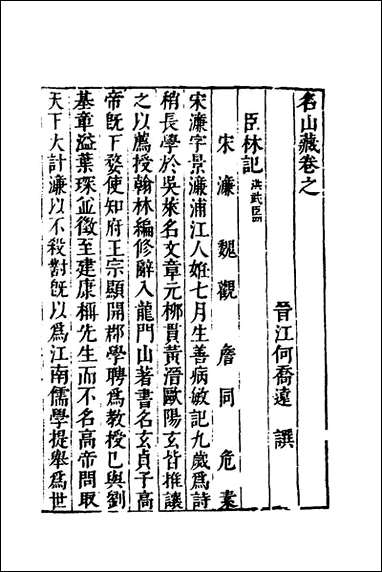 名山藏卷之
晉江何喬遠 譔
臣林記 洪武臣四
宋濂 魏觀 詹同 危素
宋濂字景濂浦江人姙七月生善病敏記九歲爲詩
稍長學於吳萊名文章元柳貫黃溍歐陽玄皆推讓
之以薦授翰林編修辭入龍門山著書名玄貞子高
帝旣下婺使知府王宗顯開郡學聘爲教授已與劉
基章溢葉琛並徵至建康稱先生而不名高帝問取
天下大計濂以不殺對旣以爲江南儒學提舉爲世